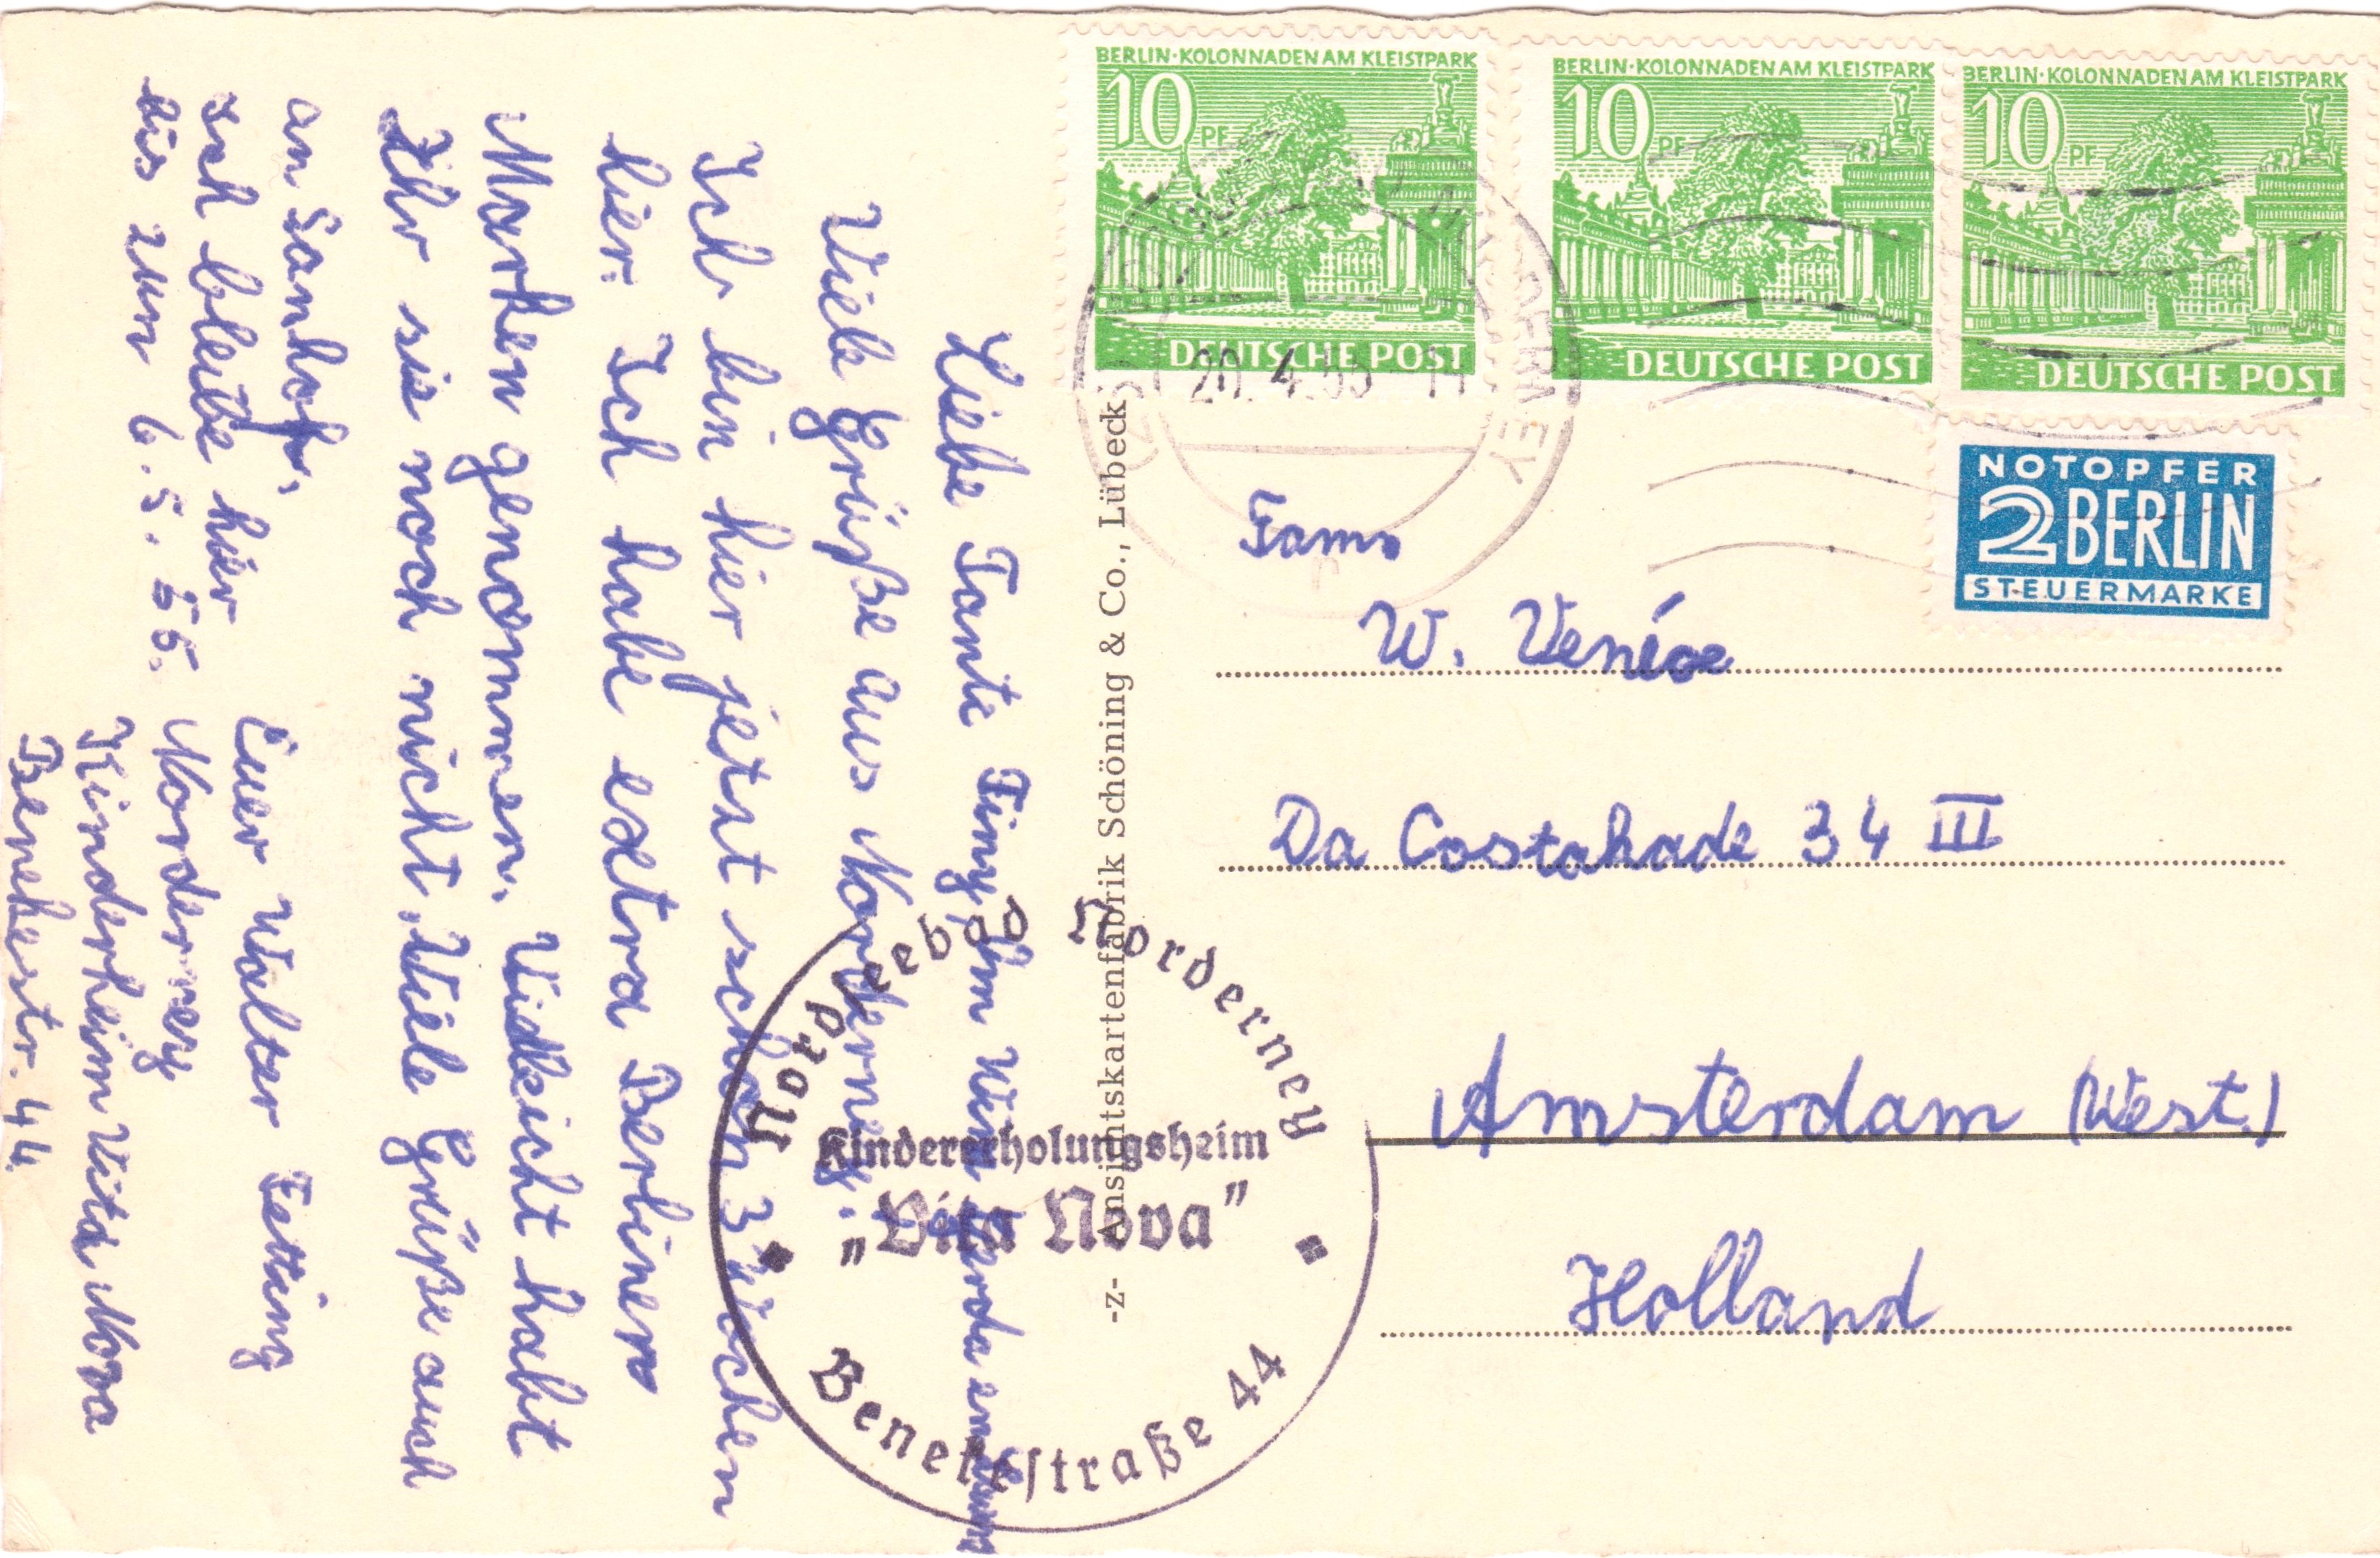 BERLIN·KOLONNADEN AM KLEISTPARK
10 PF
DEUTSCHE POST
BERLIN·KOLONNADEN AM KLEISTPARK
10 PF
DEUTSCHE POST
BERLIN·KOLONNADEN AM KLEISTPARK
10 PF
DEUTSCHE POST
20.4.55
NOTOPFER
2 BERLIN
STEUERMARKE
Fam.
W.
Da Costakade 34 III
Amsterdam (West.)
Holland
-z- Ansichtskartenfabrik Schöning & Co., Lübeck
Nordseebad Norderney
Kindererholungsheim
„Vita Nova"
Benekestraße 44
Liebe Tante Tiny,
Viele Grüße aus Norderney.
Ich bin hier jetzt schon 3 Wochen
hier. Ich habe extra Berliner
Marken genommen. Vielleicht habt
Ihr sie noch nicht. Viele Grüße auch
an
Ich bleibe hier
bis zum 6.5.55.
Euer Walter
Norderney
Kinderheim Vita Nova
Benekestr. 44